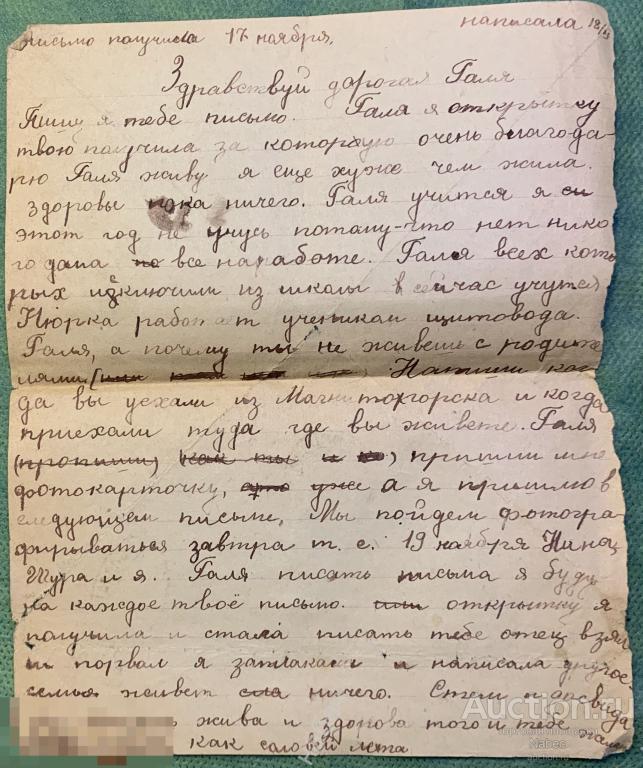 письмо получила 17 ноября. написала 18/XI
Здравствуй дорогая Галя
Пишу я тебе письмо. Галя я открытку
твою получила за которую очень благода-
рю Галя живу я еще хуже чем жила.
здоровы пока ничего. Галя учится я
этот год не учусь потому-что нет нико
го дома все на работе. Галя всех кото
рых исключили из школы сейчас учутся
Нюрка работает учеником щитовода.
Галя, а почему ты не живешь с родите
лями Напиши ког
да вы уехали из Магниторгорска и когда
приехали туда где вы живете. Галя
(пропиши) (как ты и) пришли мне
фотокарточку, уже а я пришлю в
следующем письме, Мы пойдем фотогра-
фироваться завтра т. е. 19 ноября Нина,
Шура и я. Галя писать письма я буду
на каждое твоё письмо. или открытку я
получила и стала писать тебе отец взял
и порвал я заплакала и написала другое
семья живет ничего. С тем и до свида
жива и здорова того и тебе
как соловей лета
Auction.ru
Nabec